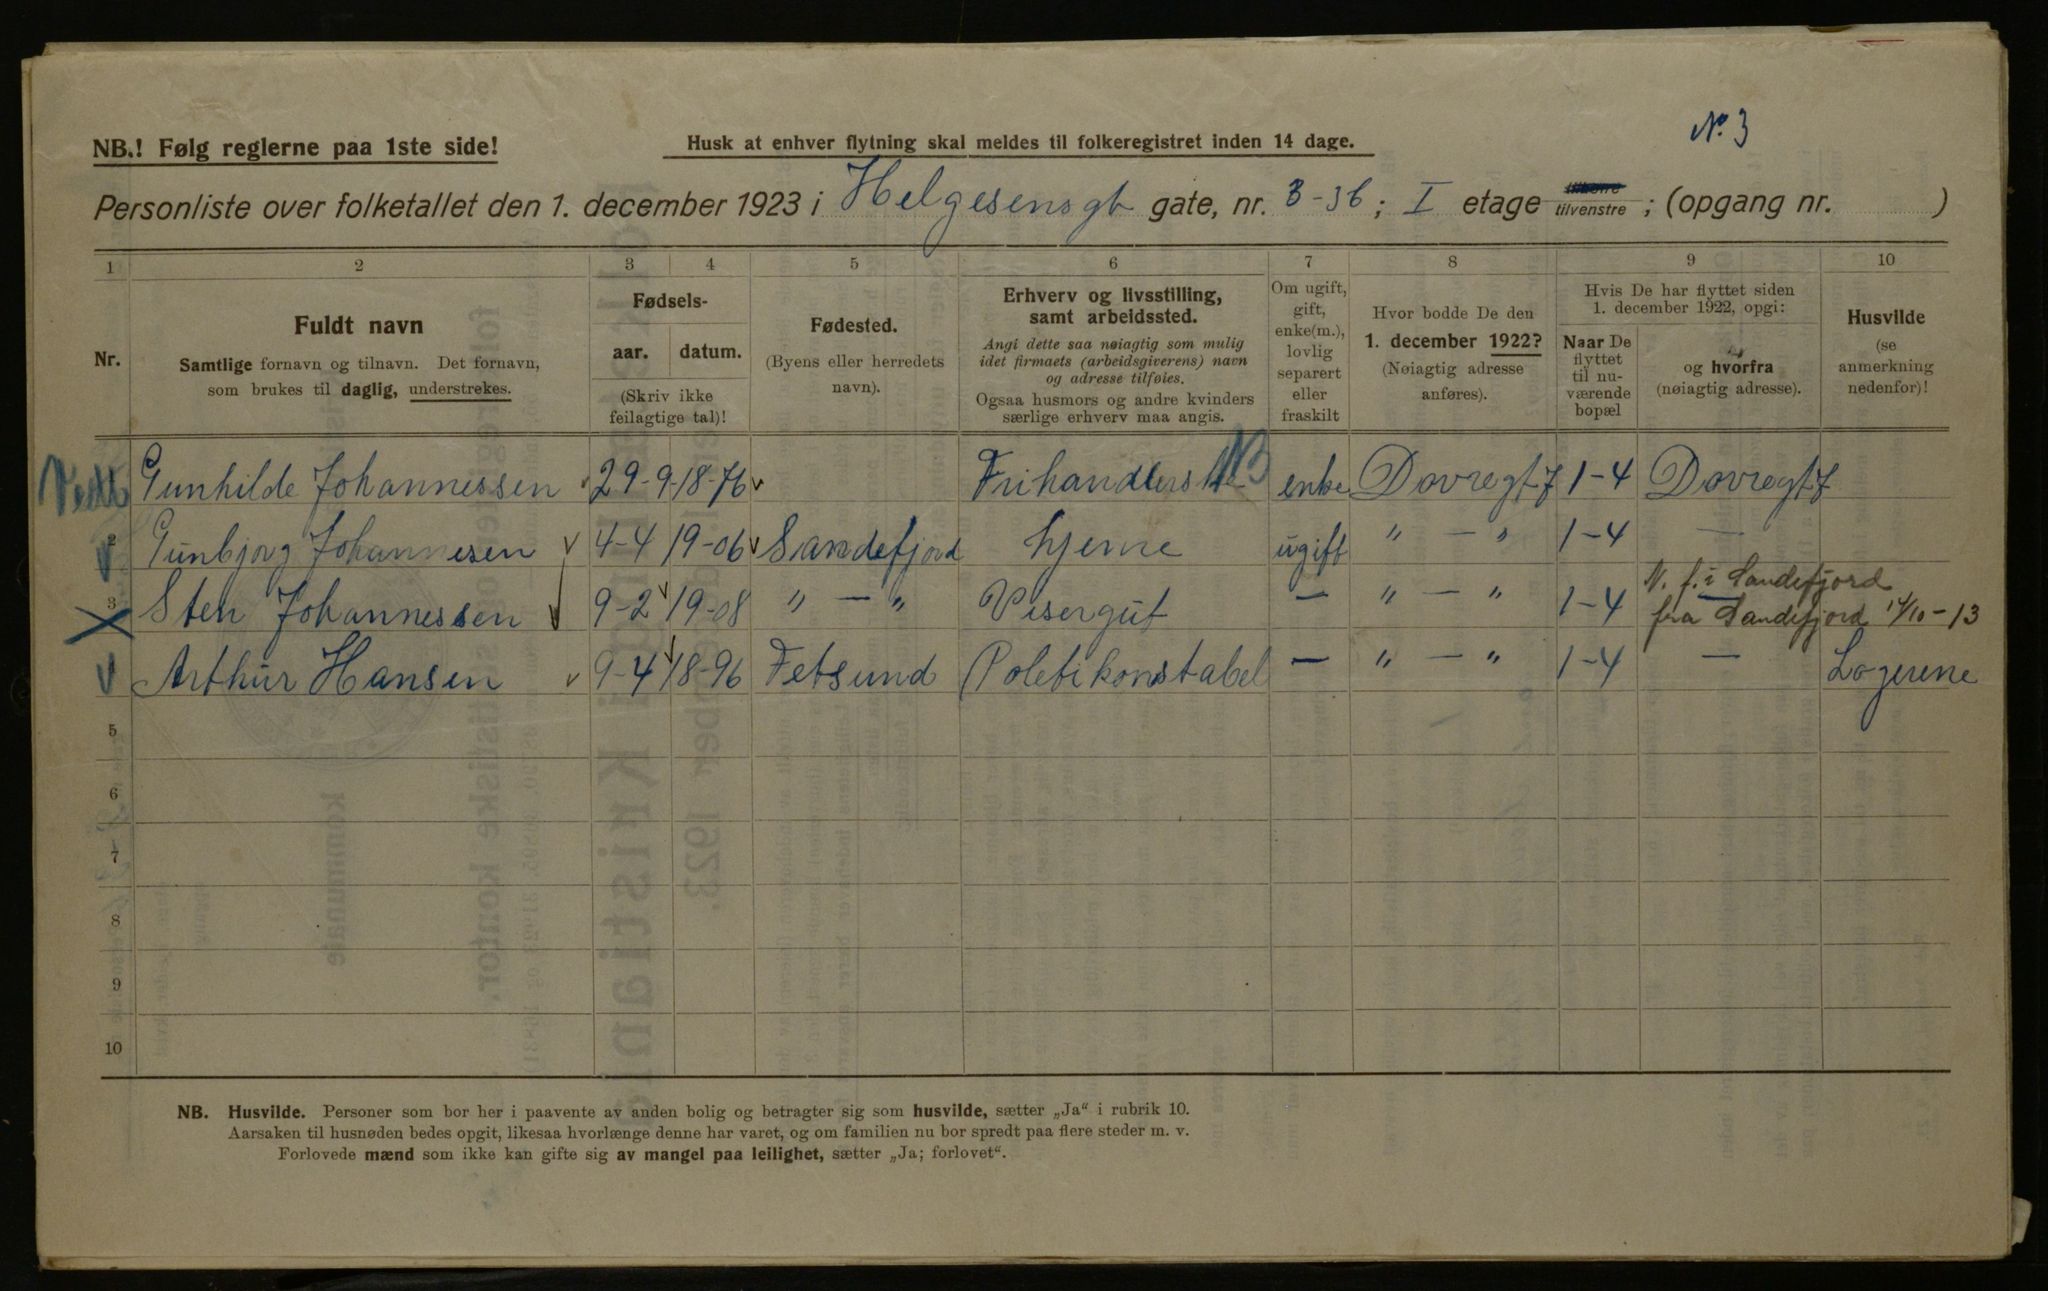 No. 3
NB.! Følg reglerne paa 1ste side!
Husk at enhver flytning skal meldes til folkeregistret inden 14 dage.
Personliste over folketallet den 1. december 1923 i Helgesensgt gate, nr. 3-36; I etage tilvenstre; (opgang nr. )
1 2 3 4 5 6 7 8 9 10
Nr.
Fuldt navn
Samtlige fornavn og tilnavn. Det fornavn,
som brukes til daglig, understrekes.
Fødsels-
aar. datum.
(Skriv ikke
feilagtige tal)!
Fødested.
(Byens eller herredets
navn).
Erhverv og livsstilling,
samt arbeidssted.
Angi dette saa nøiagtig som mulig
idet firmaets (arbeidsgiverens) navn
og adresse tilføies.
Ogsaa husmors og andre kvinders
særlige erhverv maa angis.
Om ugift,
gift,
enke(m.),
lovlig
separert
eller
fraskilt
Hvor bodde De den
1. december 1922?
(Nøiagtig adresse
anføres).
Hvis De har flyttet siden
1. december 1922, opgi:
Naar De
flyttet
til nu-
værende
bopæl
og hvorfra
(nøiagtig adresse).
Husvilde
(se
anmerkning
nedenfor)!
Gunhilde Johannessen 29-9 18-76 Frihandlers NB enke Dovregt 7 1-4 Dovregt 7
2 Gunbjorg Johannesen 4-4 19-06 Sandefjord hjeme ugift " — " 1-4 —
3 Sten Johannessen 9-2 19-08 " — " Visergut — " — " 1-4 N. f. i Sandefjord
fra Sandefjord 14/10-13
Arthur Hansen 9-4 18-96 Fetsund Poletikonstabel — " — " 1-4 — Logerene
5
6
7
8
9
10
NB. Husvilde. Personer som bor her i paavente av anden bolig og betragter sig som husvilde, sætter „Ja“ i rubrik 10.
Aarsaken til husnøden bedes opgit, likesaa hvorlænge denne har varet, og om familien nu bor spredt paa flere steder m. v.
Forlovede mænd som ikke kan gifte sig av mangel paa leilighet, sætter „Ja; forlovet“.